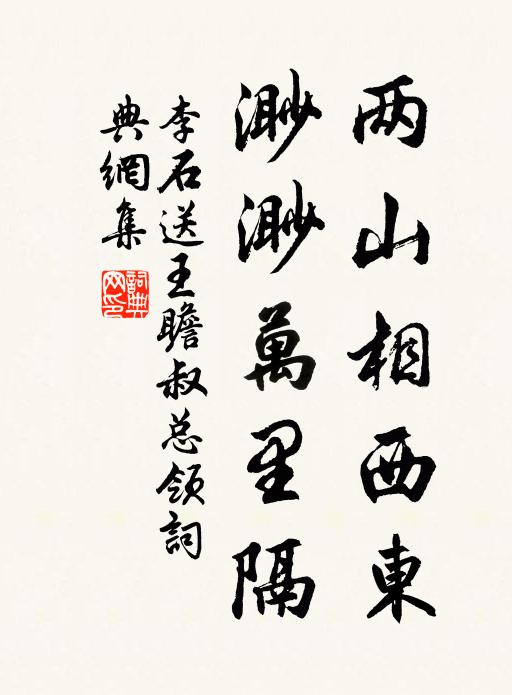 两山相西東
渺渺萬里隔
李石送王瞻叔总领詞
典網集
詞典網印